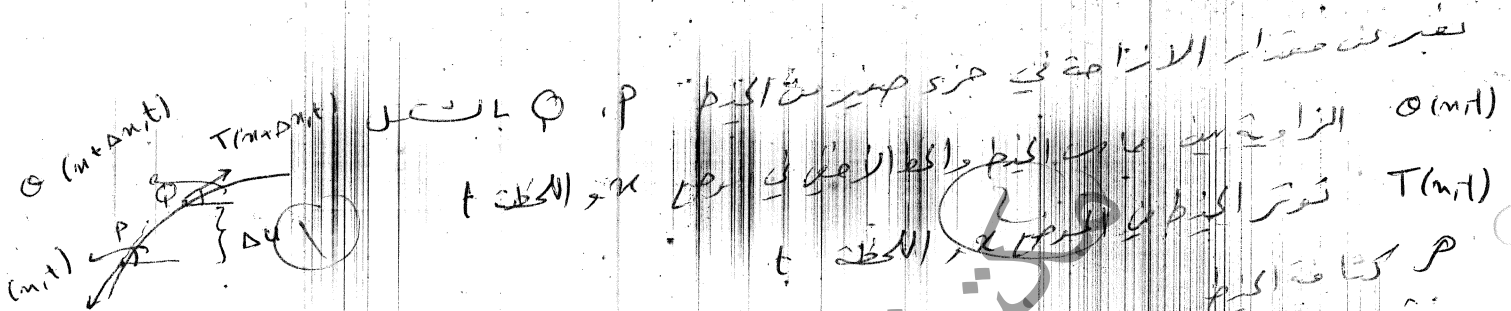 نعبر عن مقدار الازاحة في جزء صغير من الخيط P، Q بالشكل
θ(x,t) الزاوية بين مماس الخيط والخط الأفقي في الموضع x و اللحظة t
T(x,t) توتر الخيط في الموضع x، اللحظة t
ρ كثافة الخيط
θ(x+Δx,t)
T(x+Δx,t)
Q
P
Δu
(x,t)
١